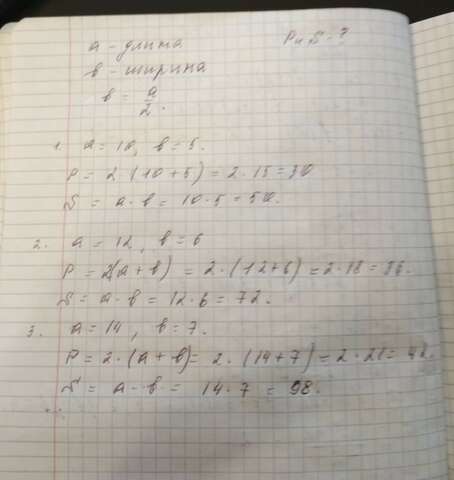 a - длина P и S - ?
в - ширина
в = a/2.
1. a = 10, в = 5.
P = 2 (10 + 5) = 2 · 15 = 30
S = a · в = 10 · 5 = 50.
2. a = 12, в = 6
P = 2(a + в) = 2 · (12 + 6) = 2 · 18 = 36.
S = a · в = 12 · 6 = 72.
3. a = 14, в = 7.
P = 2 · (a + в) = 2 · (14 + 7) = 2 · 21 = 42.
S = a · в = 14 · 7 = 98.